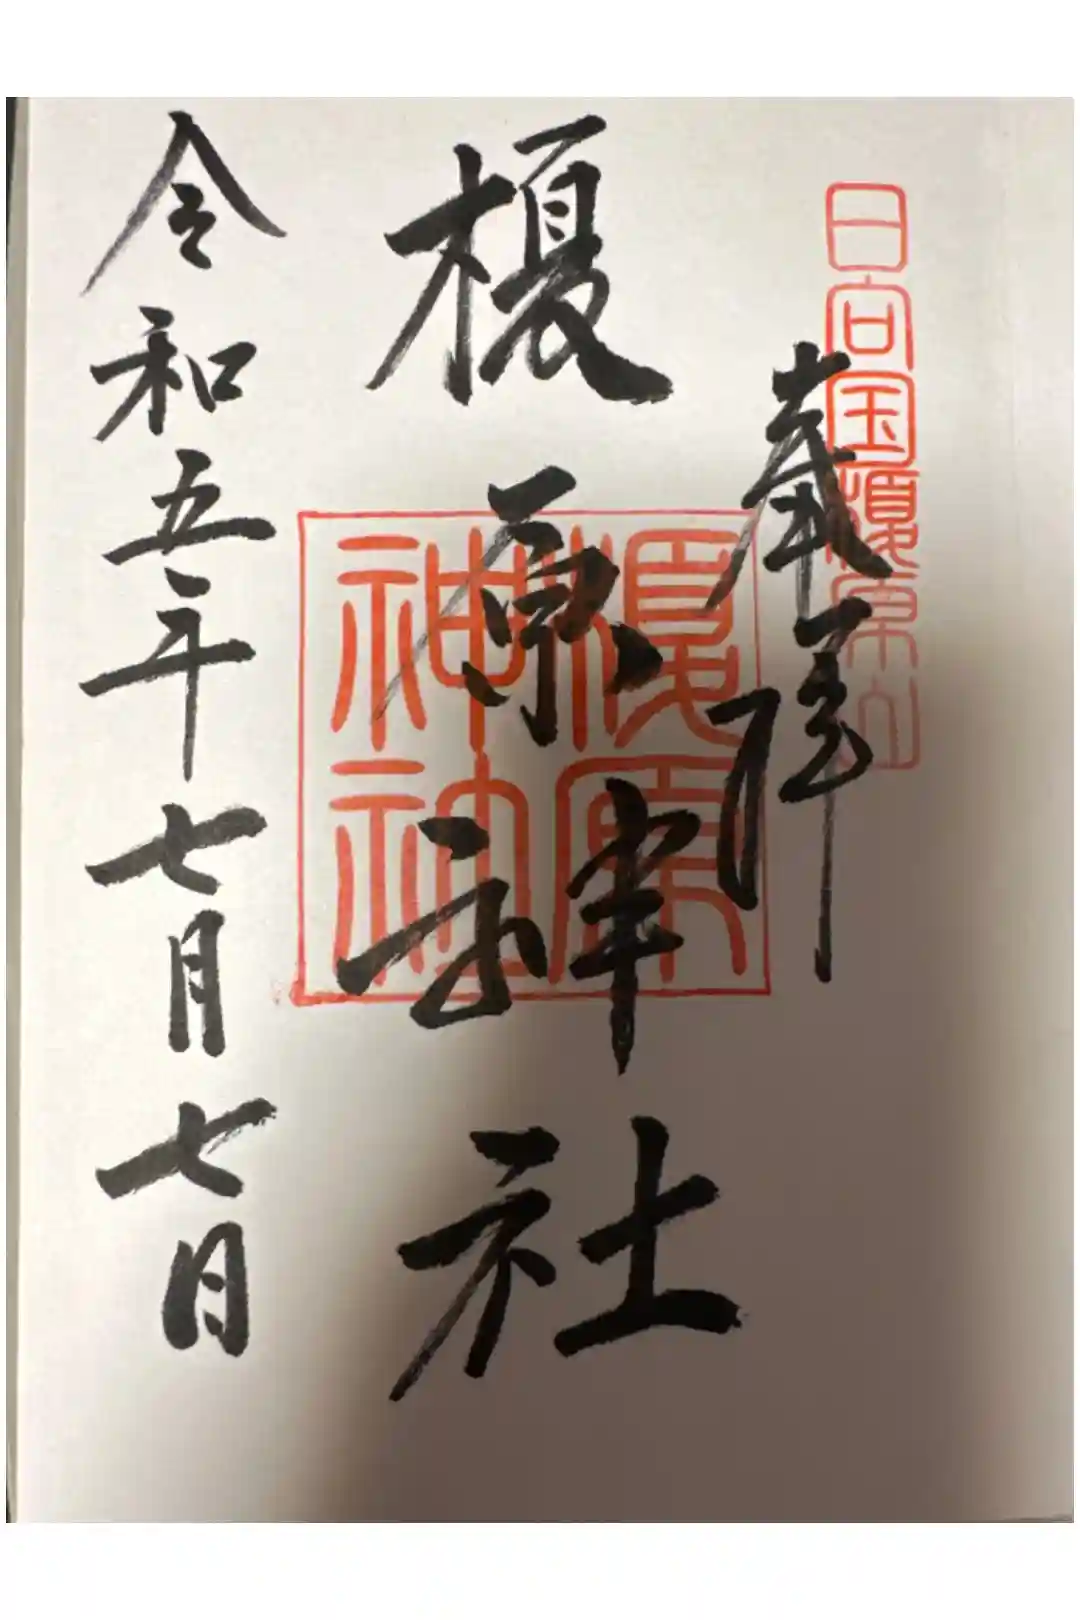 日向国榎原山
奉拝
榎原神社
榎原
神社
令和五年七月七日